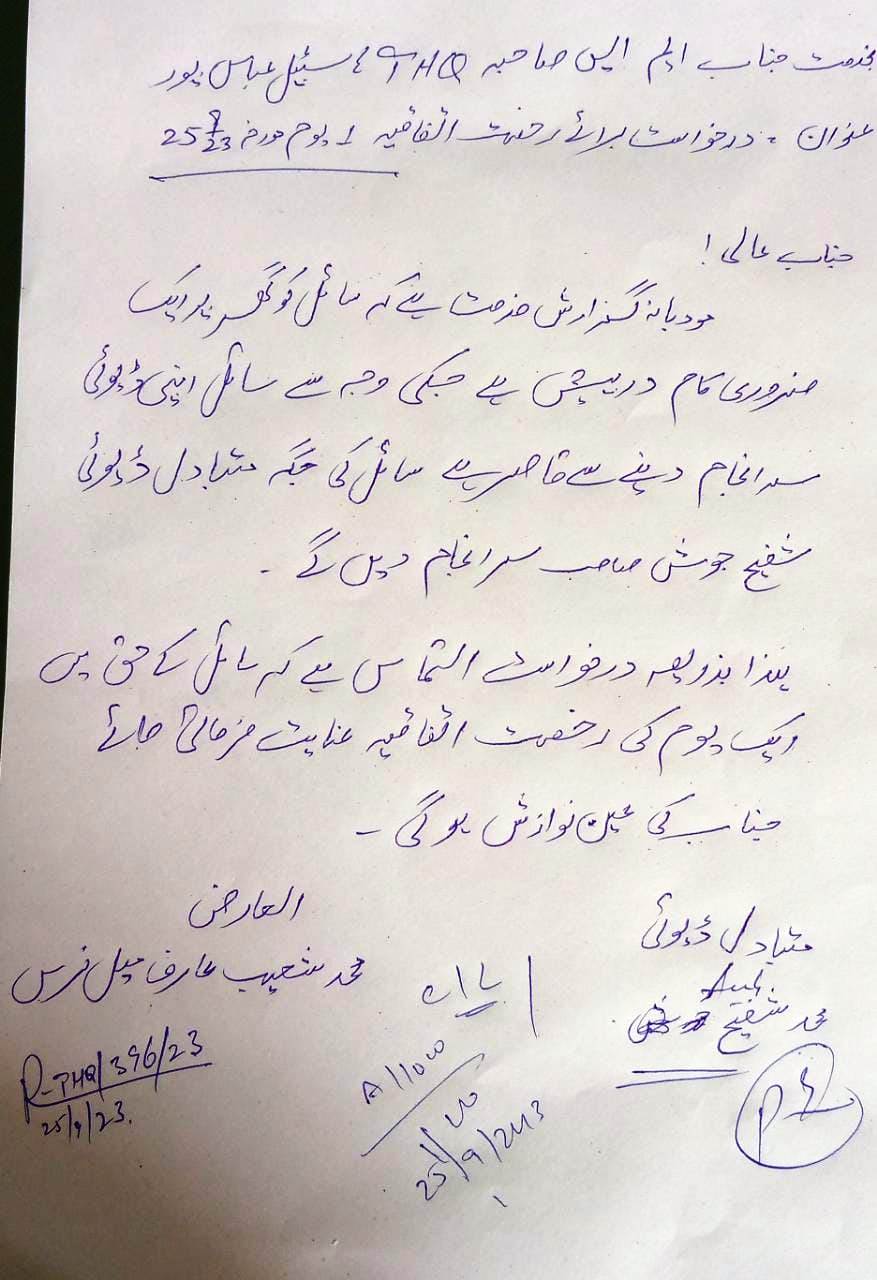 بخدمت جناب ایم ایس صاحبہ THQ ہسپتال عباس پور
عنوان - درخواست برائے رخصت اتفاقیہ 1 یوم مورخہ 25 9/23
جناب عالی!
مودبانہ گزارش خدمت ہے کہ سائل کو گھر پر ایک
ضروری کام درپیش ہے جسکی وجہ سے سائل اپنی ڈیوٹی
سرانجام دینے سے قاصر ہے سائل کی جگہ متبادل ڈیوٹی
شفیح جوش صاحب سرانجام دیں گے -
لہذا بذریعہ درخواست التماس ہے کہ سائل کے حق میں
ایک یوم کی رخصت اتفاقیہ عنایت فرمائی جائے
جناب کی عین نوازش ہوگی -
العارض
محمد شعیب عارف میل نرس
R-THQ/396/23
25/9/23.
Allow
25/9/2023
متبادل ڈیوٹی
محمد شفیح